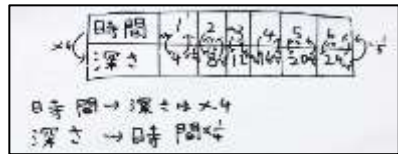 時間 1 2 3 4 5 6
×4 深さ 4 8 12 16 20 24
時間→深さは×4
深さ→時間×1/4